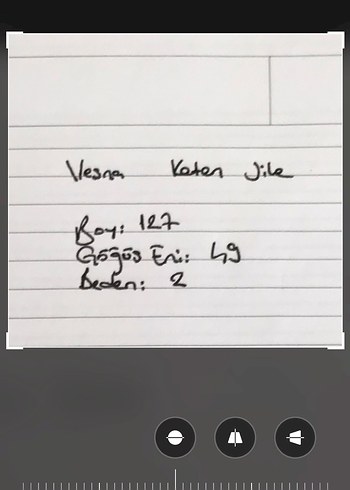 Vesna Keten Jile
Boy: 127
Göğüs Eni: 49
Beden: 2